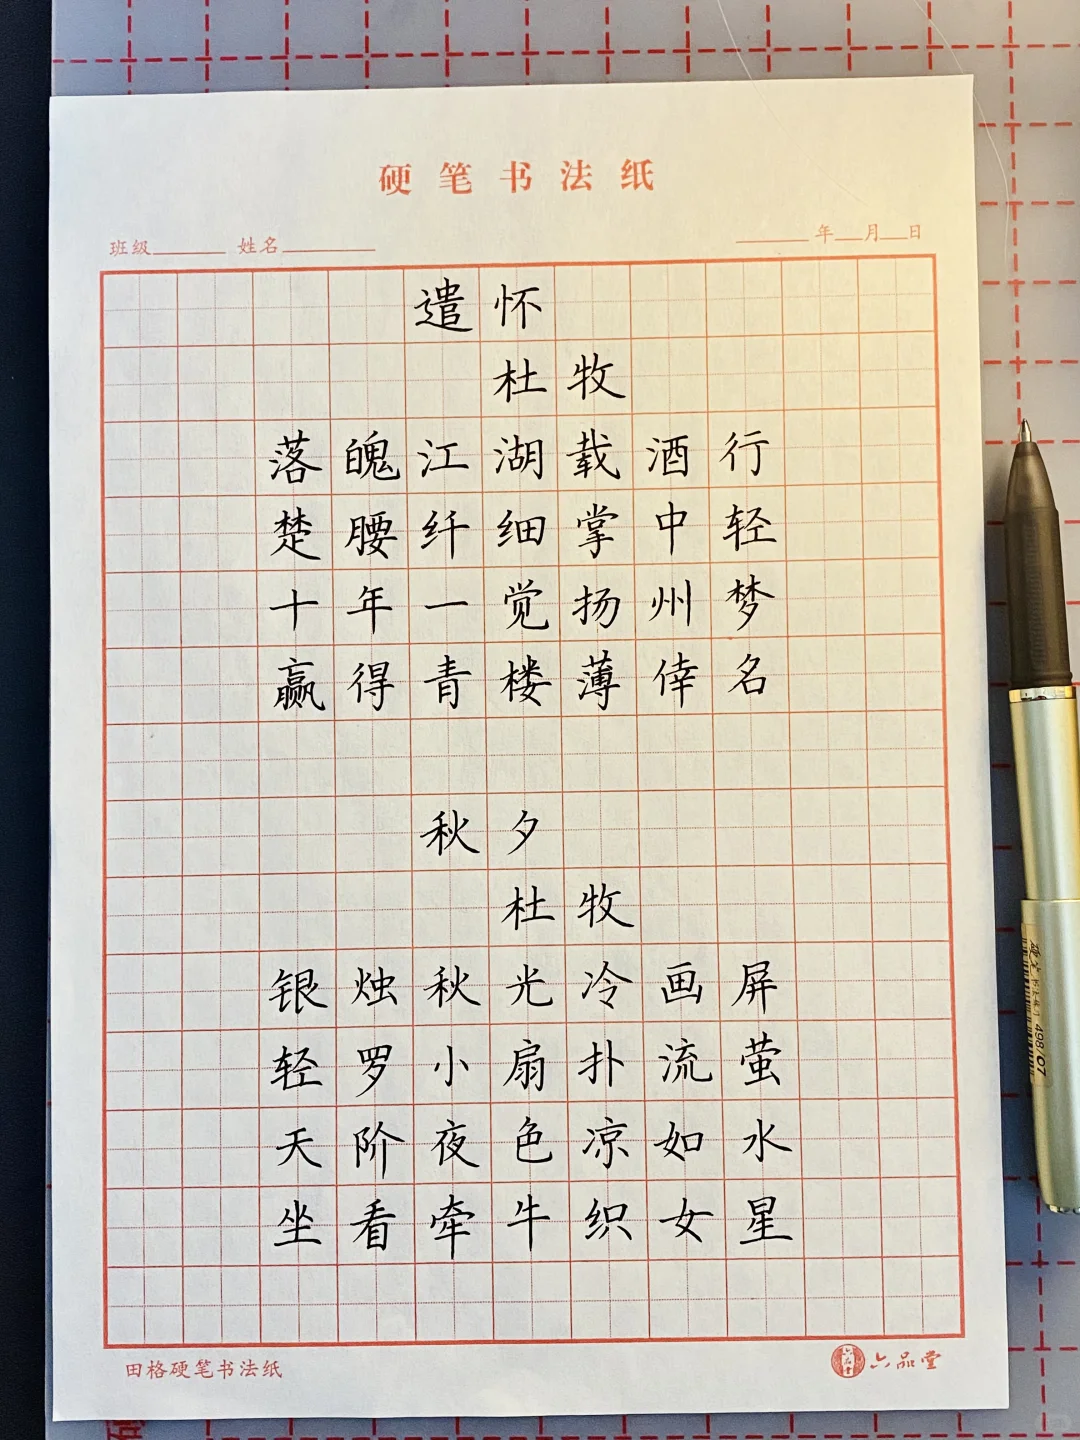 硬笔书法纸
班级 姓名 年 月 日
遣怀
杜牧
落魄江湖载酒行
楚腰纤细掌中轻
十年一觉扬州梦
赢得青楼薄倖名
秋夕
杜牧
银烛秋光冷画屏
轻罗小扇扑流萤
天阶夜色凉如水
坐看牵牛织女星
田格硬笔书法纸
六品堂